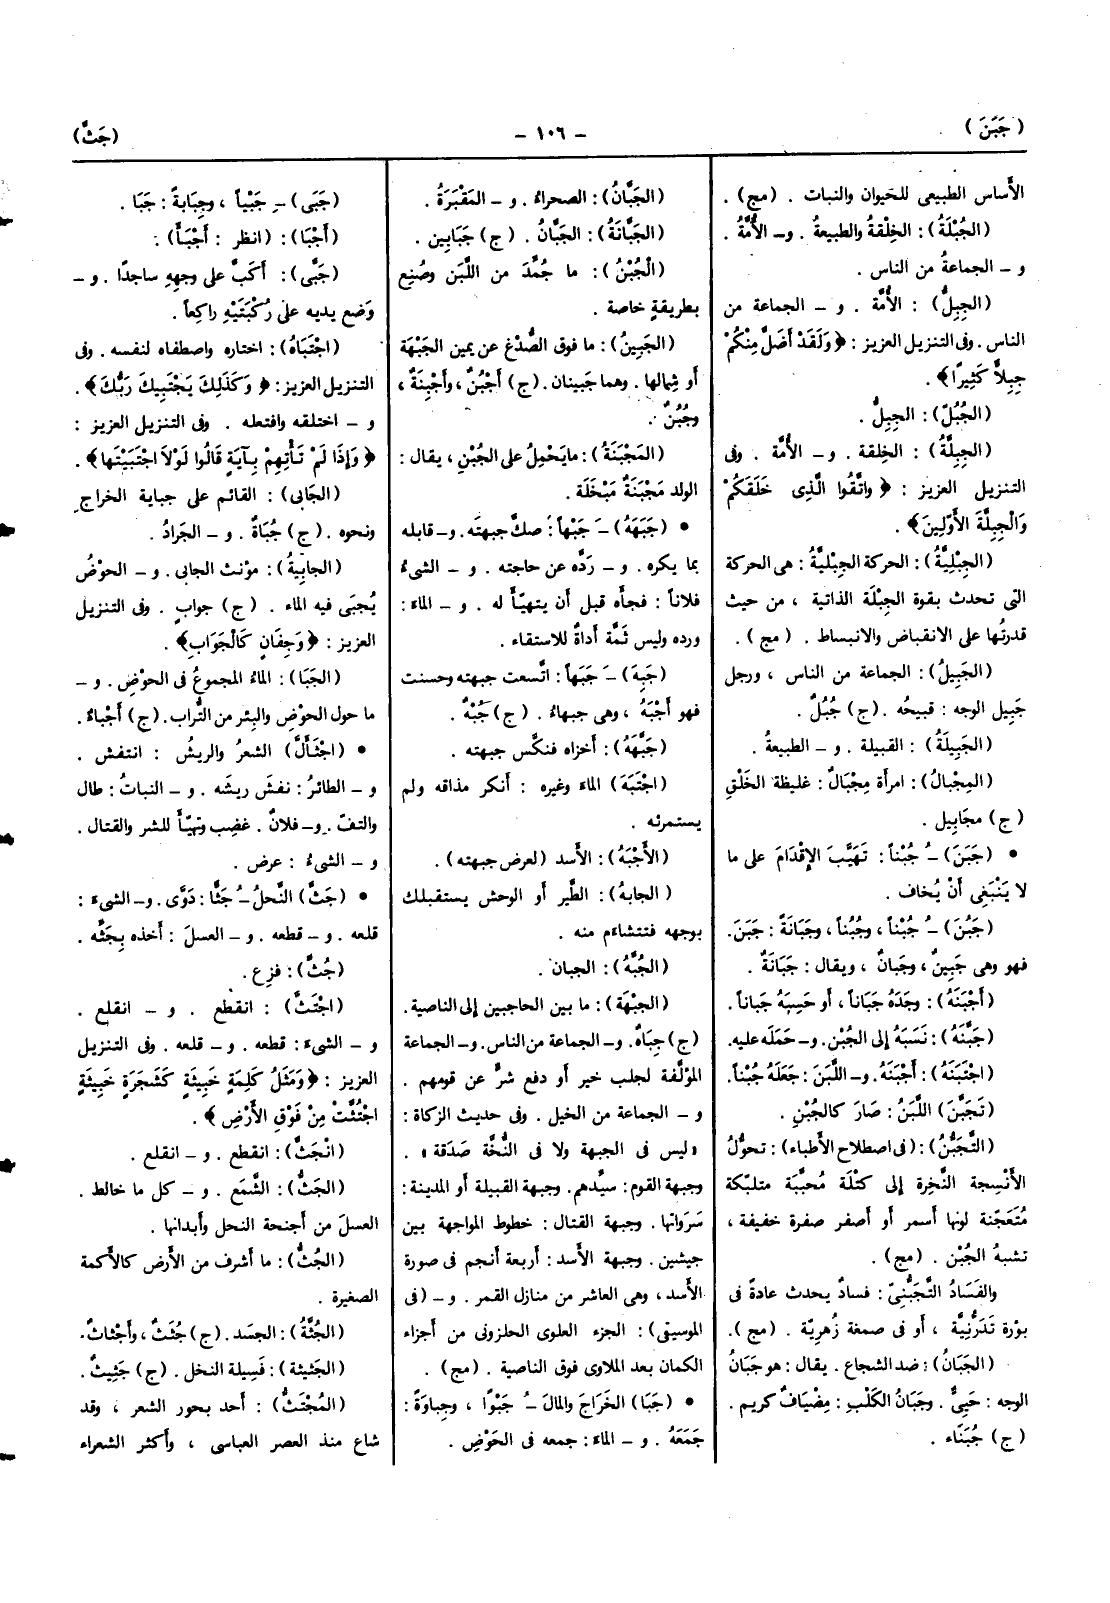 (جَبَنَ)
- ١٠٦ -
(جَثَّ)
الأساس الطبيعى للحيوان والنبات . (مج) .
(الجُبْلَةُ) : الخِلقةُ والطبيعةُ . و- الأُمَّةُ .
و - الجماعةُ من الناس .
(الجِبِلُّ) : الأُمَّة . و - الجماعة من
الناس . وفى التنزيل العزيز : ﴿ وَلَقَدْ أَضَلَّ مِنْكُمْ
جِبِلاًّ كَثِيرًا ﴾ .
(الجُبُلّ) : الجِبِلُّ .
(الجِبِلَّةُ) : الخِلقة . و- الأُمَّة . وفى
التنزيل العزيز : ﴿ واتَّقُوا الَّذِى خَلَقَكُمْ
وَالْجِبِلَّةَ الأَوَّلِينَ ﴾ .
(الجِبْلِيَّةُ) : الحركة الجِبْليَّةُ : هى الحركة
التى تحدث بقوة الجِبْلَة الذاتية ، من حيث
قدرتُها على الانقباض والانبساط . (مج) .
(الجَبِيلُ) : الجماعة من الناس ، ورجل
جَبِيل الوجه : قبيحُه . (ج) جُبُلٌ .
(الجَبِيلَةُ) : القبيلة . و - الطبيعةُ .
(المِجْبالُ) : امرأة مِجْبَالٌ : غليظة الخَلْقِ
(ج) مجَابِيل .
• (جَبَنَ) -ُ جُبْناً : تَهَيَّبَ الإِقْدَامَ على ما
لا يَنْبَغِى أَنْ يُخاف .
(جَبُنَ) -ُ جُبْناً ، وجُبُناً ، وجَبَانَةً : جَبَنَ.
فهو وهى جَبِينٌ ، وجَبانٌ ، ويقال : جَبَانَةٌ .
(أَجْبَنَهُ) : وجَدَهُ جَبَاناً ، أَو حَسِبَهُ جَباناً .
(جَبَّنَهُ) : نَسَبَهُ إلى الجُبْن. و- حَمَلَه عليه.
(اجْتَبَنَهُ) : أَجْبَنَهُ . و- اللَّبَنَ : جَعَلَهُ جُبْناً .
(تَجَبَّنَ) اللَّبَنُ : صَارَ كالجُبْنِ .
(التَّجَبُّنُ) : (فى اصطلاح الأَطباء) : تحوُّلُ
الأَنْسِجة النَّخِرة إلى كتْلَة مُحبَّبَة متلبّكة
مُتَعَجّنة لونها أسمر أو أصفر صفرة خفيفة ،
تشبهُ الجُبْن . (مج) .
والفَسَادُ التَّجَبُّنِىّ : فسادٌ يحدث عادةً فى
بؤرة تَدَرُّنِيَّة ، أو فى صمغة زُهرِيّة . (مج) .
(الجَبَانُ) : ضد الشجاع . يقال : هو جَبَانُ
الوجه : حَيِىٌّ . وجَبَانُ الكَلْب : مِضْيَافٌ كريم .
(ج) جُبَنَاء .
(الجَبَّانُ) : الصحراء . و - المَقْبَرَةُ .
(الجَبَّانَةُ) : الجَبَّانُ . (ج) جَبَابِين .
(الْجُبْنُ) : ما جُمِّدَ من اللَّبَن وصُنِع
بطريقةٍ خاصة .
(الجَبِينُ) : ما فوق الصُّدْغِ عن يمين الجَبْهَة
أَو شِمالها . وهما جَبينان . (ج) أَجْبُنٌ ، وأَجْبِنَةٌ ،
وجُبُنٌ .
(المَجْبَنَةُ) : ما يَحْمِلُ على الجُبْنِ ، يقال :
الولد مَجْبَنَةٌ مَبْخَلَة .
• (جَبَهَهُ) -َ جَبْهاً : صكَّ جبهته . و- قابله
بما يكره . و - رَدَّه عن حاجته . و - الشىءُ
فلاناً : فجأَه قبل أن يتهيّأ له . و - الماءَ :
ورده وليس ثَمَّة أداةٌ للاستقاء .
(جَبِهَ) -َ جَبَهاً : اتَّسعت جبهته وحسنت
فهو أَجْبَهُ ، وهى جبهاءُ . (ج) جُبْهٌ .
(جَبَّهَهُ) : أخزاه فنكَّس جبهته .
(اجْتَبَهَ) الماءَ وغيره : أَنكر مذاقه ولم
يستمرئه .
(الأَجْبَهُ) : الأسد (لعرض جبهته) .
(الجابهُ) : الطَّير أو الوحش يستقبلك
بوجهه فتتشاءم منه .
(الجُبَّهُ) : الجبان .
(الجَبْهَة) : ما بين الحاجبين إلى الناصية .
(ج) جِبَاهٌ . و- الجماعة من الناس . و- الجماعة
المؤَلَّفة لجلب خير أو دفع شرٍّ عن قومهم .
و - الجماعة من الخيل . وفى حديث الزكاة :
«ليس فى الجبهة ولا فى النُّخَّة صَدَقة» .
وجبهة القوم : سيِّدهم . وجبهة القبيلة أو المدينة :
سَرَواتها . وجبهة القتال : خطوط المواجهة بين
جيشين . وجبهة الأسد : أربعة أنجم فى صورة
الأسد ، وهى العاشر من منازل القمر . و - (فى
الموسيقى) : الجزء العلوى الحلزونى من أجزاء
الكمان بعد الملاوى فوق الناصية . (مج) .
• (جَبَا) الخَرَاجَ والمالَ -ُ جَبْوًا ، وجِباوَةً :
جَمَعَهُ . و - الماءَ : جمعه فى الحَوْضِ .
(جَبَى) -ِ جَبْياً ، وجِبَايةً : جَبَا .
(أَجْبَا) : (انظر : أَجْبَأَ) .
(جَبَّى) : أَكَبَّ على وجهِهِ ساجدًا . و -
وَضع يديه على رُكْبَتَيْهِ راكِعاً .
(اجْتَبَاهُ) : اختاره واصطفاه لنفسه . وفى
التنزيل العزيز : ﴿ وَكَذَلِكَ يَجْتَبِيكَ رَبُّكَ ﴾ .
و - اختلقه وافتعله . وفى التنزيل العزيز :
﴿ وَإِذَا لَمْ تَأْتِهِمْ بِآيَةٍ قَالُوا لَوْلاَ اجْتَبَيْتَها ﴾ .
(الجَابِى) : القائم على جباية الخراجِ
ونحوه . (ج) جُبَاةٌ . و - الجَرادُ .
(الجابِيةُ) : مؤنث الجابى . و - الحوْضُ
يُجبَى فيه الماء . (ج) جوابٍ . وفى التنزيل
العزيز : ﴿ وَجِفَانٍ كَالْجَوَابِ ﴾ .
(الجَبَا) : الماءُ المجموعُ فى الحوْضِ . و -
ما حول الحوْضِ والبِئر من التُّراب . (ج) أَجْباءٌ .
• (اجْثَأَلَّ) الشعرُ والريشُ : انتفش .
و - الطائرُ : نفش ريشَه . و - النباتُ : طال
والتفّ . و- فلانٌ . غضِب وتهيّأ للشر والقتال .
و - الشىءُ : عرض .
• (جَثَّ) النَّحلُ -ُ جَثًّا : دَوَّى . و- الشىءَ :
قلعه . و- قطعه . و- العسلَ : أخذه بِجَثِّه .
(جُثَّ) : فزِع .
(اجْتَثَّ) : انقطع . و - انقلع .
و - الشىءَ : قطعه . و - قلعه . وفى التنزيل
العزيز : ﴿ وَمَثَلُ كَلِمَةٍ خَبِيثَةٍ كَشَجَرَةٍ خَبِيثَةٍ
اجْتُثَّتْ مِنْ فَوْقِ الأَرْضِ ﴾ .
(انْجَثَّ) : انقطع . و - انقلع .
(الجَثُّ) : الشَّمَع . و - كل ما خالط
العسلَ من أجنحة النحل وأبدانها .
(الجُثُّ) : ما أشرف من الأرض كالأكمة
الصغيرة .
(الجُثَّةُ) : الجسَد . (ج) جُثَثٌ ، وأَجْثاثٌ.
(الجَثيثة) : فَسِيلة النخل . (ج) جَثِيثٌ .
(المُجْتَثُّ) : أحد بحور الشعر ، وقد
شاع منذ العصر العباسى ، وأكثر الشعراء